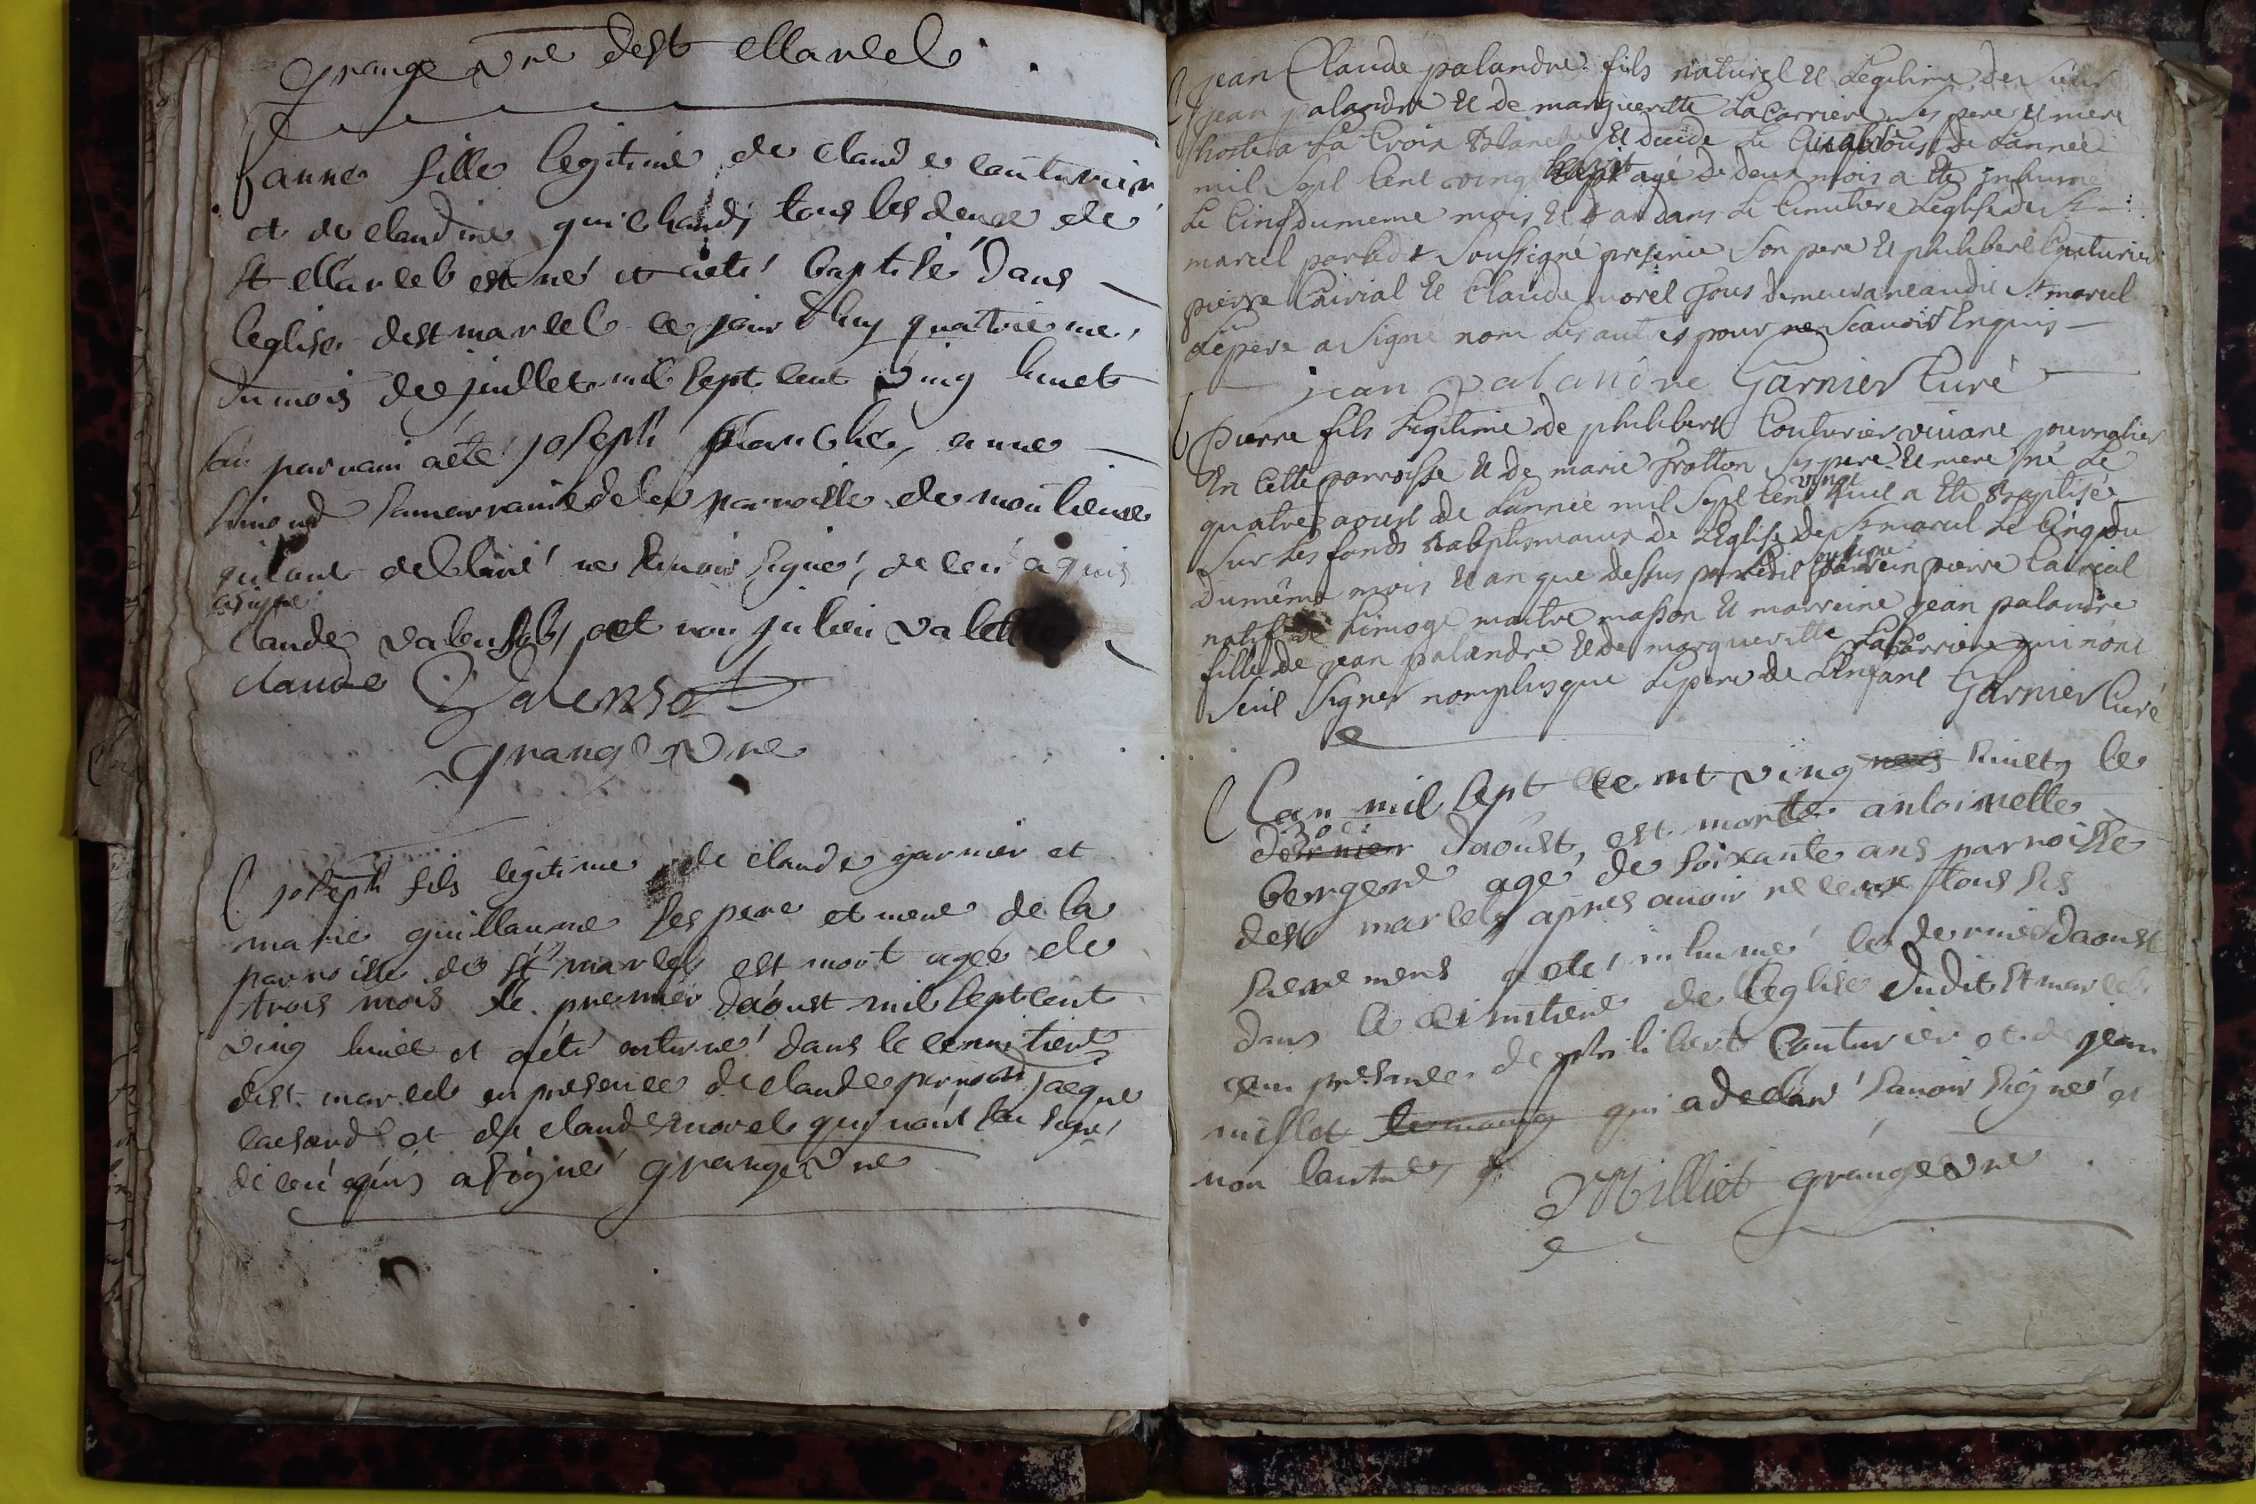 grange vre de st Marcel
anne fille legitime de claude couturier
et de claudine guichard tous les deux de
st Marcel est né et aété baptisé dans
leglise de st marcel ce jour dhuy quatrieme
du mois de juillet mil sept cent ving huict
son parrain aété joseph anne
simond sa marraine de la parroisse de
qui ont declaré ne sçavoir signé, de ceu aquis
asigné
claude valensot et non julien valette
claude Valensot
grange vre
joseph fils legitime de claude garnier et
marie guillaume ses pere et mere de la
parroisse de st marcel est mort agée de
trois mois le premier daoust mil sept cent
ving huict et aété enterré dans le cemitiere
de st marcel en presence de claude jacque
et de claude morel qui nont sceu signé
de ceu aquis asigné grange vre
jean Claude palandre fils naturel et Legitime de Sieur
jean palandre et de margueritte La Carriere ses pere et mere
hoste a La Croix Blanche et decide Le aoust de Lannée
mil Sept Cent ving huit agé de deux mois a Eté Inhumé
Le Cinq du meme mois et an dans Le Cimitiere Léglise de St
marcel par led Soussigné presence Son pere et philibert Couturier
pierre Cairial et Claude morel Tous demeurant audit St marcel
Le père a Signé non Les autres pour ne Scavoir Enquis
jean palandre Garnier Curé
pierre fils Legitime de philibert Couturier vivant journalier
En Cette parroisse et de marie Trotton Ses pere et mere né Le
vingt
quatre aoust de Lannée mil Sept Cent huit a Eté Baptisé
Sur Les fonds Babptismaux de LEglise de St marcel Le Cinq du
du même mois et an que dessus par parrein pierre Cairial
natif de Limoge maitre masson et marreine jean palandre
fille de jean palandre et de margueritte La Carriere qui nont
Sceu Signer nomplus que Le pere de LEnfant Garnier Curé
Lan mil sept cent ving huict le
dernier daoust, est morte antoinette
bergere agé de soixante ans parroisse
de st marcel apres avoir receux tous ses
sacremens a eté inhumé le dernier daoust
dans le cimitiere de leglise dudit st marcel
en presance de philibert Couturier et de jean
millot qui a declaré savoir signé et
non lautre
JMilliet grange vre